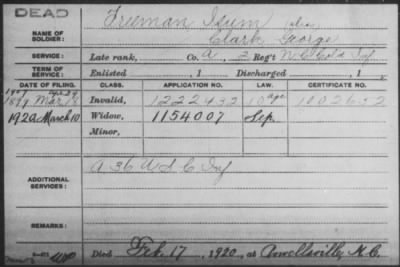 DEAD
NAME OF SOLDIER: Freeman Isum
Clark George
SERVICE: Late rank, Co. A, 2 Reg't N C Cold Inf
TERM OF SERVICE: Enlisted , 1 Discharged , 1
DATE OF FILING. CLASS. APPLICATION NO. LAW. CERTIFICATE NO.
1907
Mar Invalid, 1222432 1002632
1920 March 10 Widow, 1154007 Sep.
Minor,
ADDITIONAL SERVICES: A 36 U S C Inf
REMARKS:
Died Feb. 17, 1920, at Powellsville, N.C.